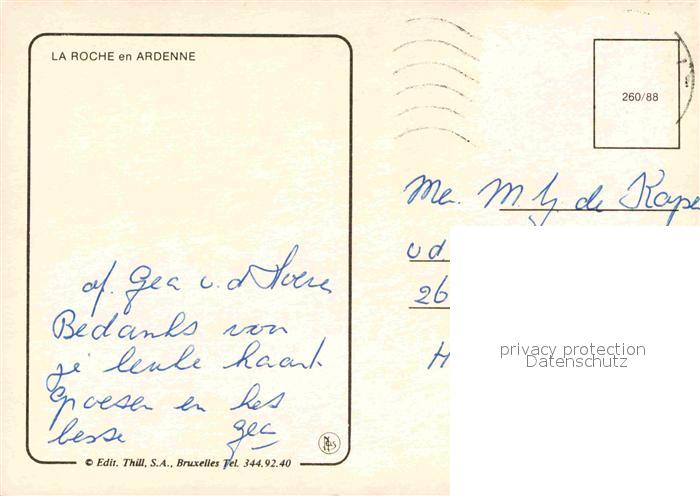 LA ROCHE en ARDENNE
260/88
Me. M. de Kape
v d.
26
H
af. Gea v. d
Bedankt voor
je leuke kaart
Groesen en het
besse Gea
© Edit. Thill, S.A., Bruxelles Tel. 344.92.40
privacy protection
Datenschutz